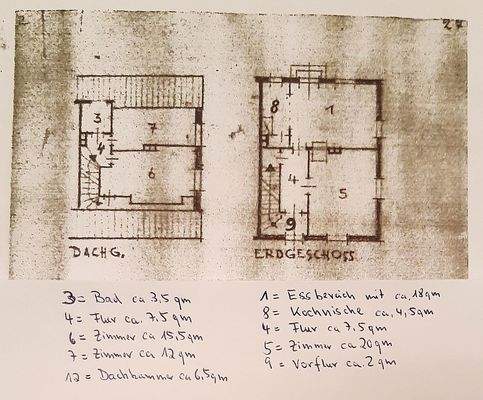 24
3
7
4
6
DACHG.
8
1
4
5
9
ERDGESCHOSS
3 = Bad ca 3,5 qm
4 = Flur ca. 7,5 qm
6 = Zimmer ca 15,5 qm
7 = Zimmer ca 12 qm
12 = Dachkammer ca 6,5 qm
1 = Essbereich mit ca. 18 qm
8 = Kochnische ca. 4,5 qm
4 = Flur ca 7,5 qm
5 = Zimmer ca 20 qm
9 = Vorflur ca. 2 qm